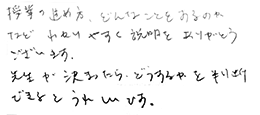 授業の進め方、どんなことをするのか
など わかりやすく説明を ありがとう
ございます。
先生が決まったら、どうするかを
できるとうれしいです。